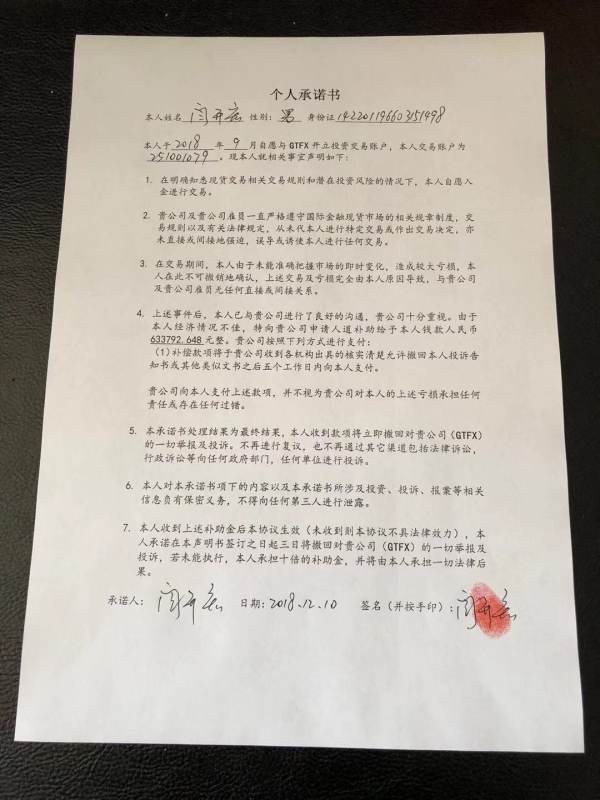 个人承诺书
本人姓名 闫开宏 性别：男 身份证 142201196603151498
本人于 2018 年 9 月自愿与 GTFX 开立投资交易账户，本人交易账户为
251001079 。现本人就相关事宜声明如下：
1. 在明确知悉现货交易相关交易规则和潜在投资风险的情况下，本人自愿入
金进行交易。
2. 贵公司及贵公司雇员一直严格遵守国际金融现货市场的相关规章制度，交
易规则以及有关法律规定，从未代本人进行特定交易或作出交易决定，亦
未直接或间接地强迫，误导或诱使本人进行任何交易。
3. 在交易期间，本人由于未能准确把握市场的即时变化，造成较大亏损，本
人在此不可撤销地确认，上述交易及亏损完全由本人原因导致，与贵公司
及贵公司雇员无任何直接或间接关系。
4. 上述事件后，本人已与贵公司进行了良好的沟通，贵公司十分重视。由于
本人经济情况不佳，特向贵公司申请人道补助给予本人钱款人民币
633792.648 元整。贵公司按照下列方式进行支付：
（1）补偿款项将于贵公司收到各机构出具的核实清楚允许撤回本人投诉告
知书或其他类似文书之后五个工作日内向本人支付。
贵公司向本人支付上述款项，并不视为贵公司对本人的上述亏损承担任何
责任或存在任何过错。
5. 本承诺书处理结果为最终结果，本人收到款项将立即撤回对贵公司（GTFX）
的一切举报及投诉。不再进行复议，也不再通过其它渠道包括法律诉讼，
行政诉讼等向任何政府部门，任何单位进行投诉。
6. 本人对本承诺书项下的内容以及本承诺书所涉及投资、投诉、报案等相关
信息负有保密义务，不得向任何第三人进行泄露。
7. 本人收到上述补助金后本协议生效（未收到则本协议不具法律效力），本
人承诺在本声明书签订之日起三日将撤回对贵公司（GTFX）的一切举报及
投诉，若未能执行，本人承担十倍的补助金，并将由本人承担一切法律后
果。
承诺人： 闫开宏 日期：2018.12.10 签名（并按手印）：闫开宏